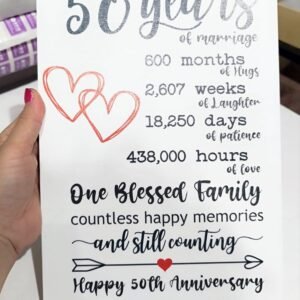 50 years
of marriage
600 months
of Hugs
2,607 weeks
of Laughter
18,250 days
of patience
438,000 hours
of love
One Blessed Family
countless happy memories
and still counting
Happy 50th Anniversary